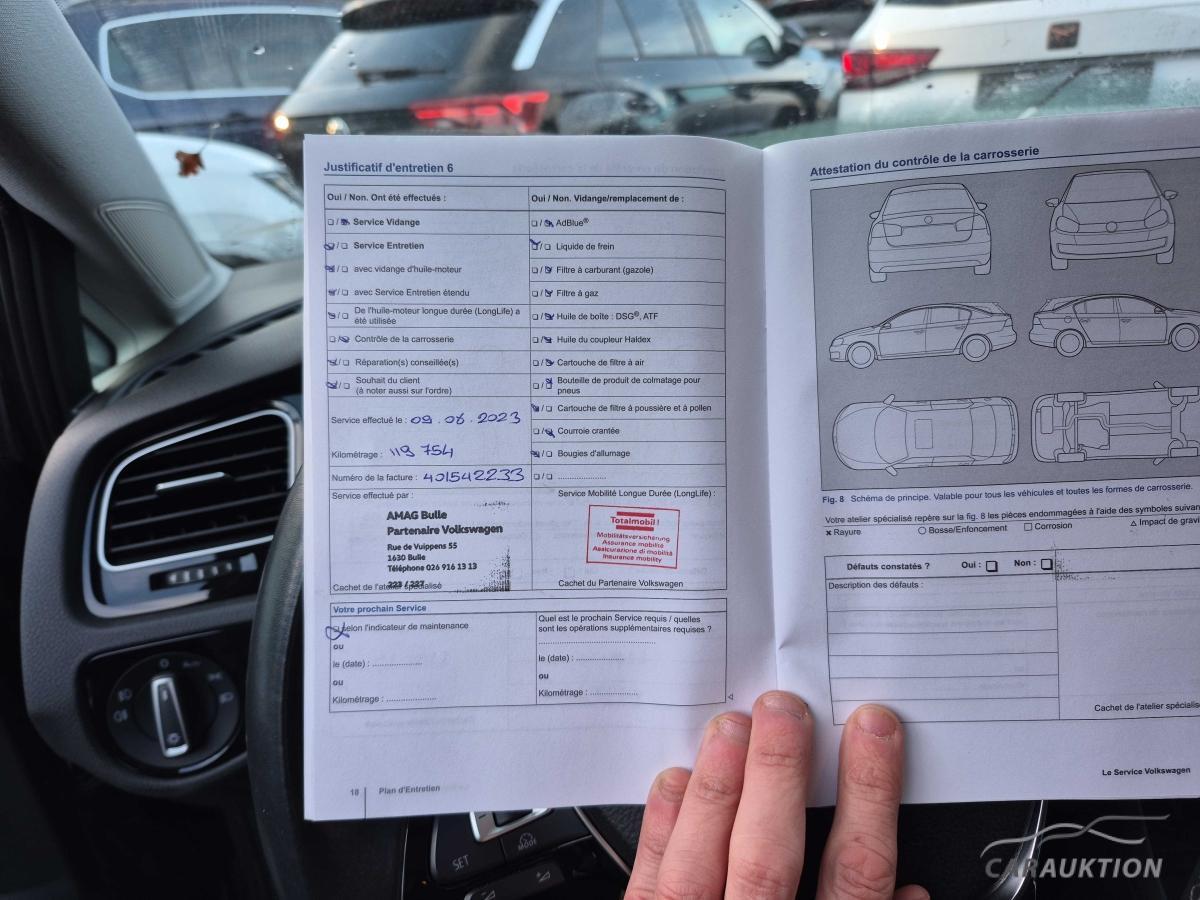 Justificatif d'entretien 6
Oui / Non. Ont été effectués :
☐ / ☐ Service Vidange
☐ / ☐ Service Entretien
☐ / ☐ avec vidange d'huile-moteur
☐ / ☐ avec Service Entretien étendu
☐ / ☐ De l'huile-moteur longue durée (LongLife) a
été utilisée
☐ / ☐ Contrôle de la carrosserie
☐ / ☐ Réparation(s) conseillée(s)
☐ / ☐ Souhait du client
(à noter aussi sur l'ordre)
Service effectué le : 09.06.2023
Kilométrage : 119 754
Numéro de la facture : 401542233
Service effectué par :
AMAG Bulle
Partenaire Volkswagen
Rue de Vuippens 55
1630 Bulle
Téléphone 026 916 13 13
223 / 227
Cachet de l'atelier spécialisé
Oui / Non. Vidange/remplacement de :
☐ / ☐ AdBlue®
☐ / ☐ Liquide de frein
☐ / ☐ Filtre à carburant (gazole)
☐ / ☐ Filtre à gaz
☐ / ☐ Huile de boîte : DSG®, ATF
☐ / ☐ Huile du coupleur Haldex
☐ / ☐ Cartouche de filtre à air
☐ / ☐ Bouteille de produit de colmatage pour
pneus
☐ / ☐ Cartouche de filtre à poussière et à pollen
☐ / ☐ Courroie crantée
☐ / ☐ Bougies d'allumage
☐ / ☐ ....................
Service Mobilité Longue Durée (LongLife) :
Totalmobil!
Mobilitätsversicherung
Assurance mobilité
Assicurazione di mobilità
Insurance mobility
Cachet du Partenaire Volkswagen
Votre prochain Service
☐ selon l'indicateur de maintenance
ou
le (date) : ....................
ou
Kilométrage : ....................
Quel est le prochain Service requis / quelles
sont les opérations supplémentaires requises ?
........................................
le (date) : ....................
ou
Kilométrage : ....................
18 Plan d'Entretien
Attestation du contrôle de la carrosserie
Fig. 8 Schéma de principe. Valable pour tous les véhicules et toutes les formes de carrosserie.
Votre atelier spécialisé repère sur la fig. 8 les pièces endommagées à l'aide des symboles
x Rayure ○ Bosse/Enfoncement ☐ Corrosion △ Impact de
Défauts constatés ? Oui : ☐ Non : ☐
Description des défauts :
Cachet de l'atelier
Le Service Volkswagen
SET
MODE
CARAUKTION